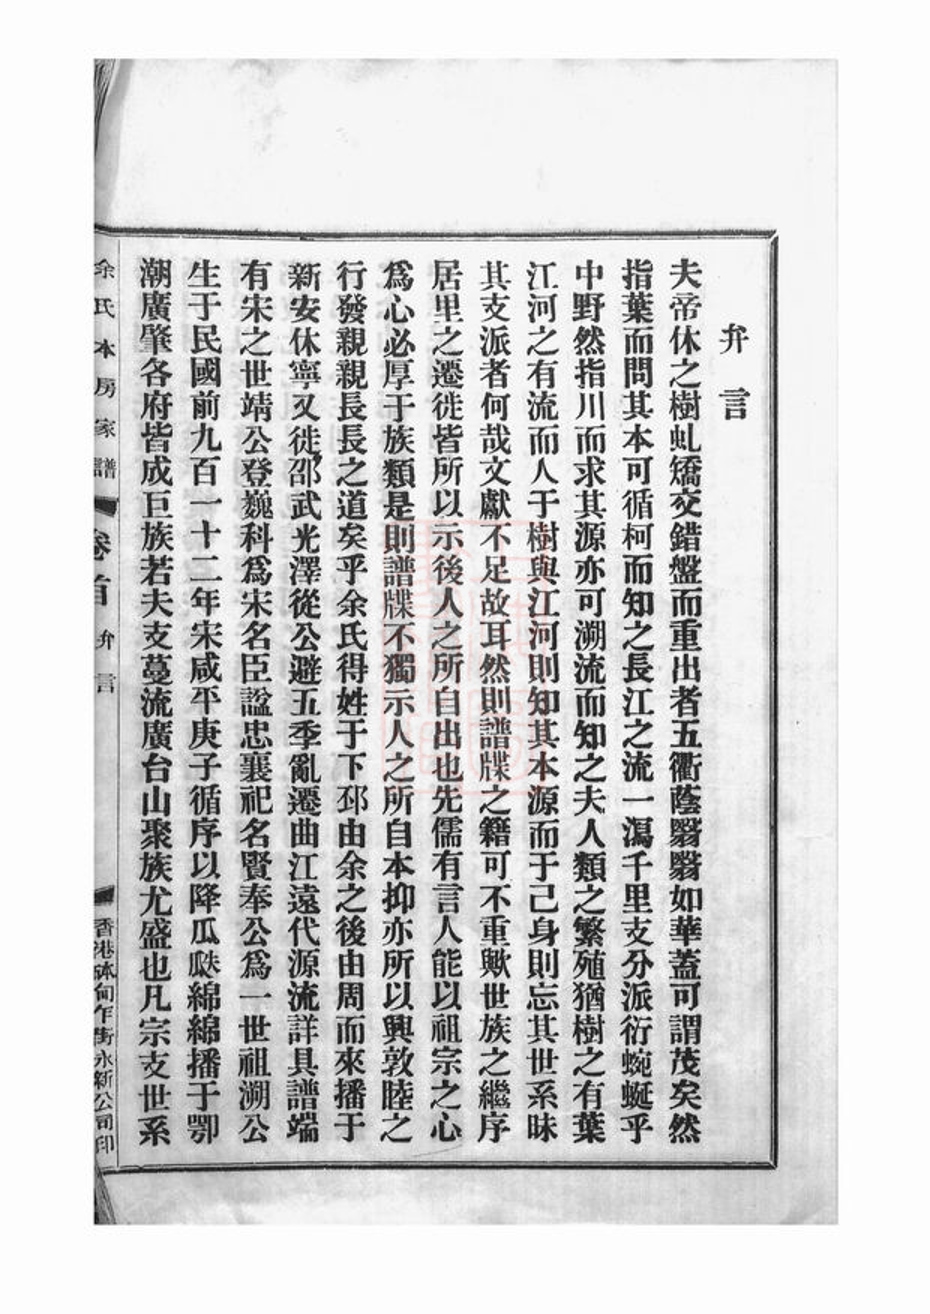 弁言
夫帝休之樹虬矯交錯盤而重出者五衢蔭翳翳如華蓋可謂茂矣然
指葉而問其本可循柯而知之長江之流一瀉千里支分派衍蜿蜒乎
中野然指川而求其源亦可溯流而知之夫人類之繁殖猶樹之有葉
江河之有流而人于樹與江河則知其本源而于己身則忘其世系昧
其支派者何哉文獻不足故耳然則譜牒之籍可不重歟世族之繼序
居里之遷徙皆所以示後人之所自出也先儒有言人能以祖宗之心
爲心必厚于族類是則譜牒不獨示人之所自本抑亦所以興敦睦之
行發親親長長之道矣乎余氏得姓于下邳由余之後由周而來播于
新安休寧又徙邵武光澤從公避五季亂遷曲江遠代源流詳具譜端
有宋之世靖公登巍科爲宋名臣諡忠襄祀名賢奉公爲一世祖溯公
生于民國前九百一十二年宋咸平庚子循序以降瓜瓞綿綿播于鄂
潮廣肇各府皆成巨族若夫支蔓流廣台山聚族尤盛也凡宗支世系
余氏本房家譜
卷首
弁言
香港砵甸乍街永新公司印